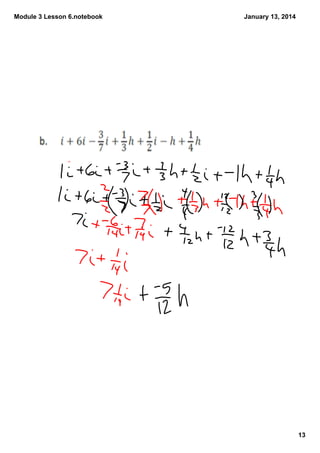 Module 3 Lesson 6.notebook
January 13, 2014
b. i + 6i − 3/7 i + 1/3 h + 1/2 i − h + 1/4 h
1i + 6i + -3/7 i + 1/3 h + 1/2 i + -1h + 1/4 h
7i + -6/14 i + 7/14 i + 4/12 h + -12/12 h + 3/4 h
7i + 1/14 i
7 1/14 i + -5/12 h
13